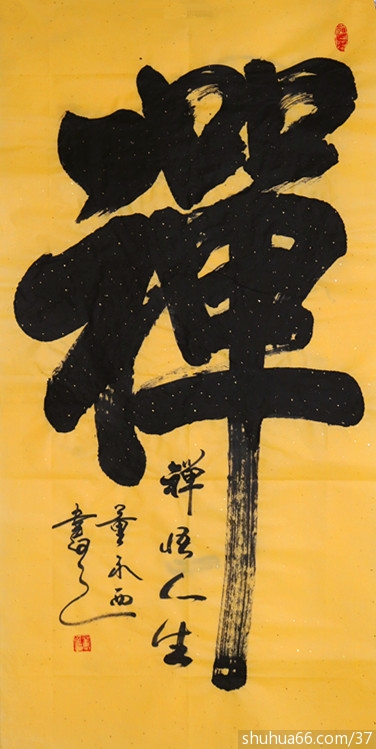 禪
禅悟人生
董永西
書
shuhua66.com/37